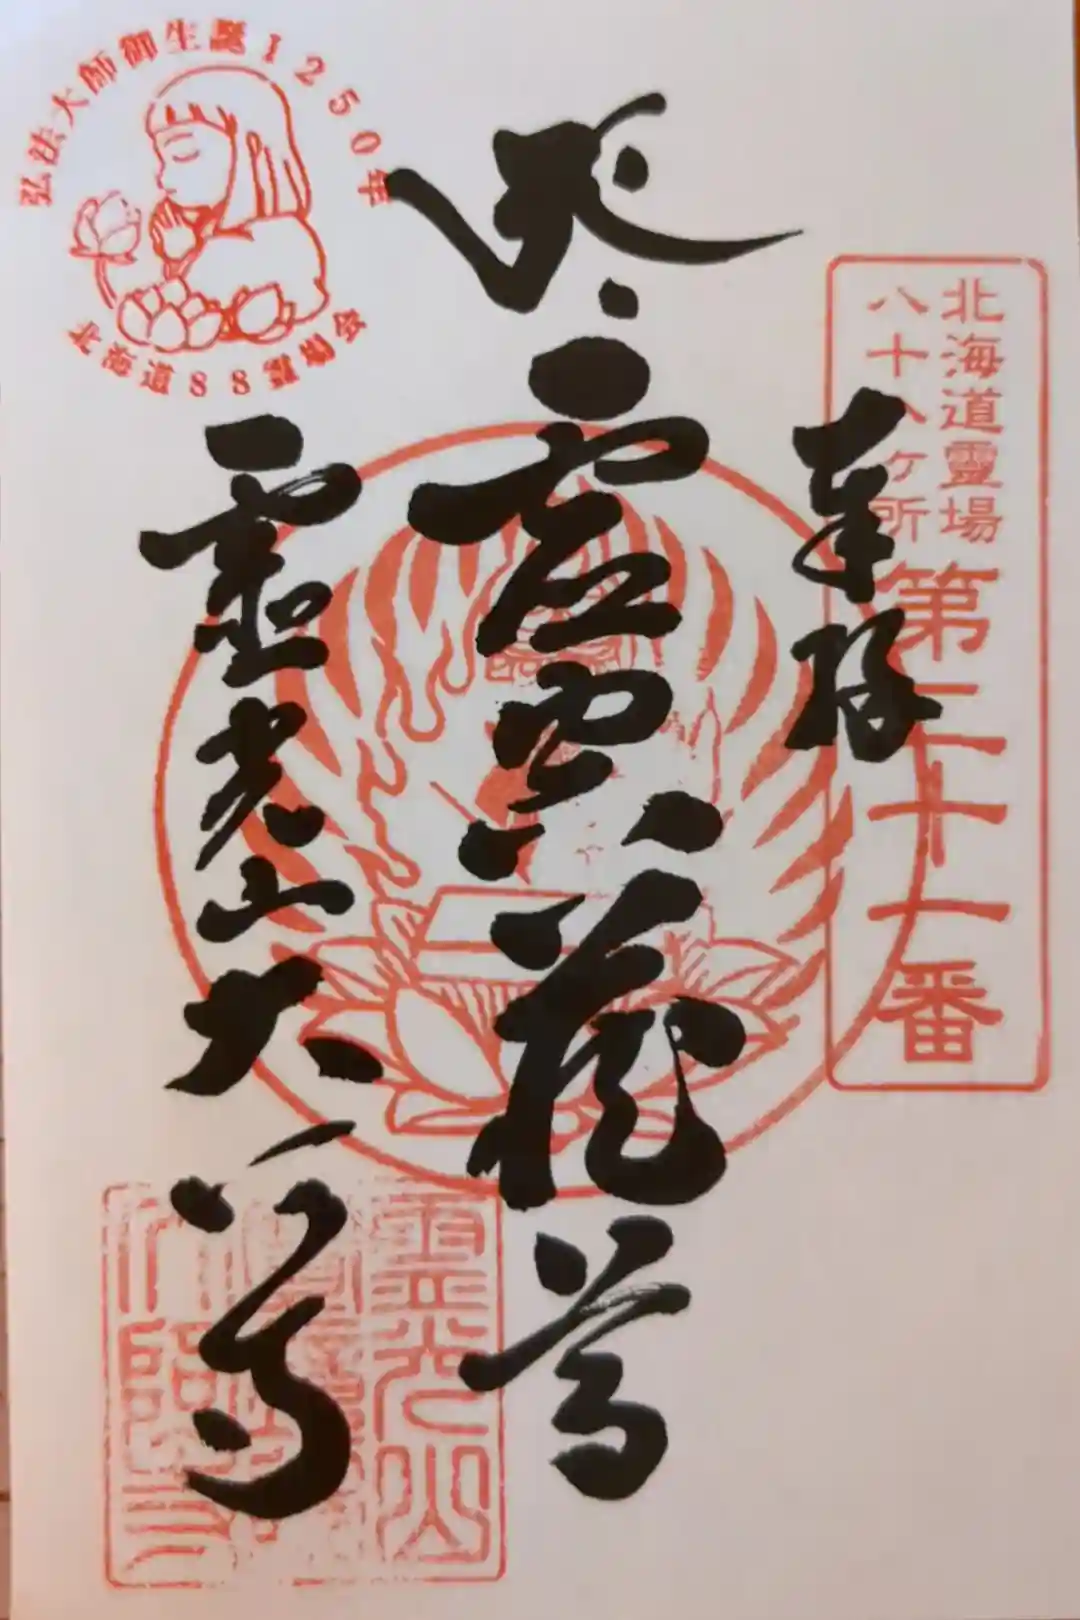 弘法大師御生誕1250年
北海道88霊場会
北海道霊場
八十八ヶ所
第二十一番
奉拝
虚空蔵尊
靈光山大
靈光山